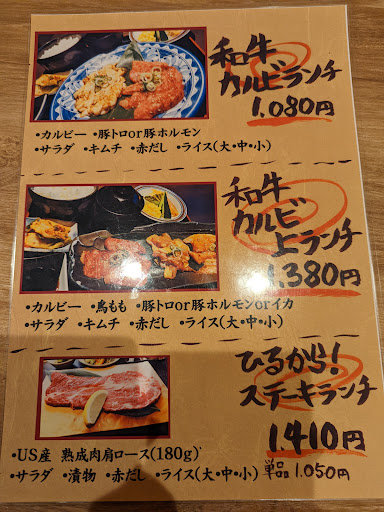 和牛
カルビランチ
1.080円
・カルビー ・豚トロor豚ホルモン
・サラダ ・キムチ ・赤だし ・ライス(大・中・小)
和牛
カルビ
上ランチ
1.380円
・カルビー ・鳥もも ・豚トロor豚ホルモンorイカ
・サラダ ・キムチ ・赤だし ・ライス(大・中・小)
ひるから!
ステーキランチ
1.410円
・US産 熟成肉肩ロース(180g)
単品 1.050円
・サラダ ・漬物 ・赤だし ・ライス(大・中・小)